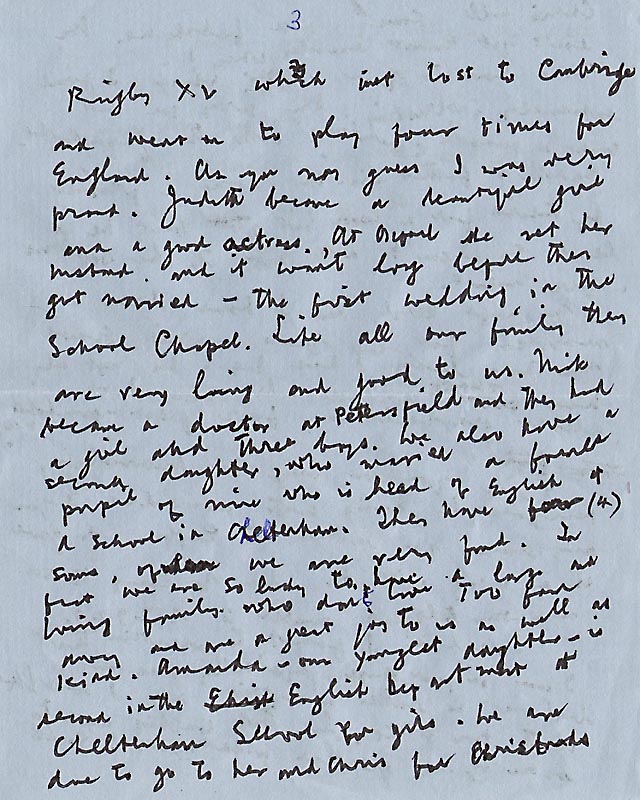 3
Rugby XV which just lost to Cambridge
and went on to play four times for
England. As you may guess I was very
proud. Judith became a beautiful girl
and a good actress. At Oxford she met her
husband and it wasn't long before they
got married – the first wedding in the
School Chapel. Like all our family they
are very loving and good to us. Nick
became a doctor at Petersfield and they had
a girl and three boys. We also have a
second daughter, who married a former
pupil of mine who is head of English at
a school in Cheltenham. They have four (4)
sons, of whom we are very fond. In
fact we are so lucky to have a large and
loving family who don't live too far
away and are a great joy to us as well as
kind. Amanda – our youngest daughter – is
second in the English Department at
Cheltenham School for girls. We are
due to go to her and Chris for Christmas